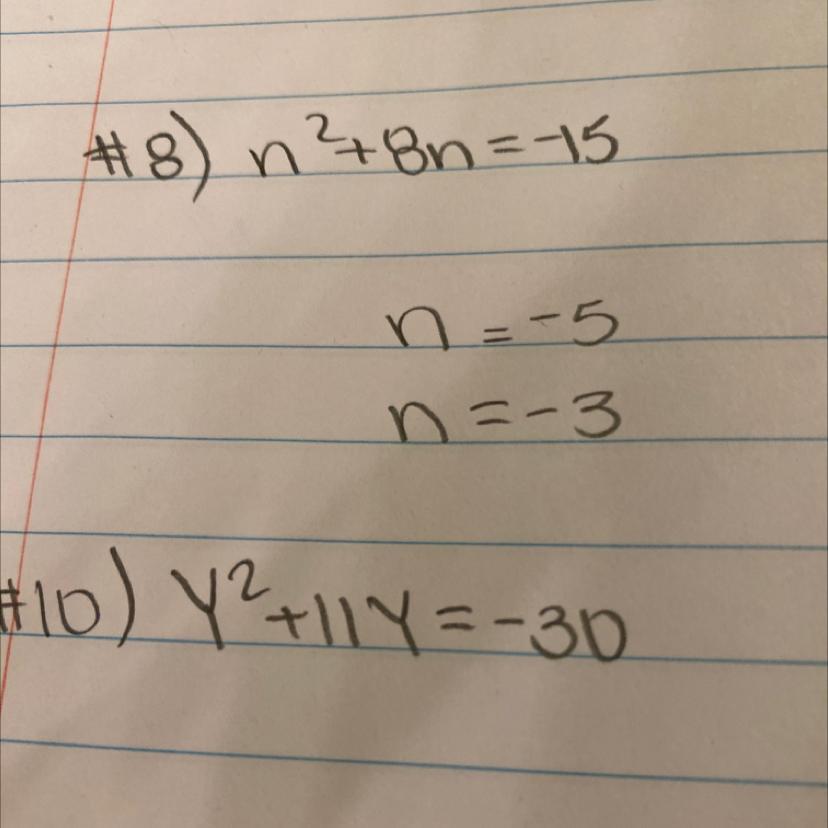 #8) n²+8n=-15
n=-5
n=-3
#10) Y²+11Y=-30